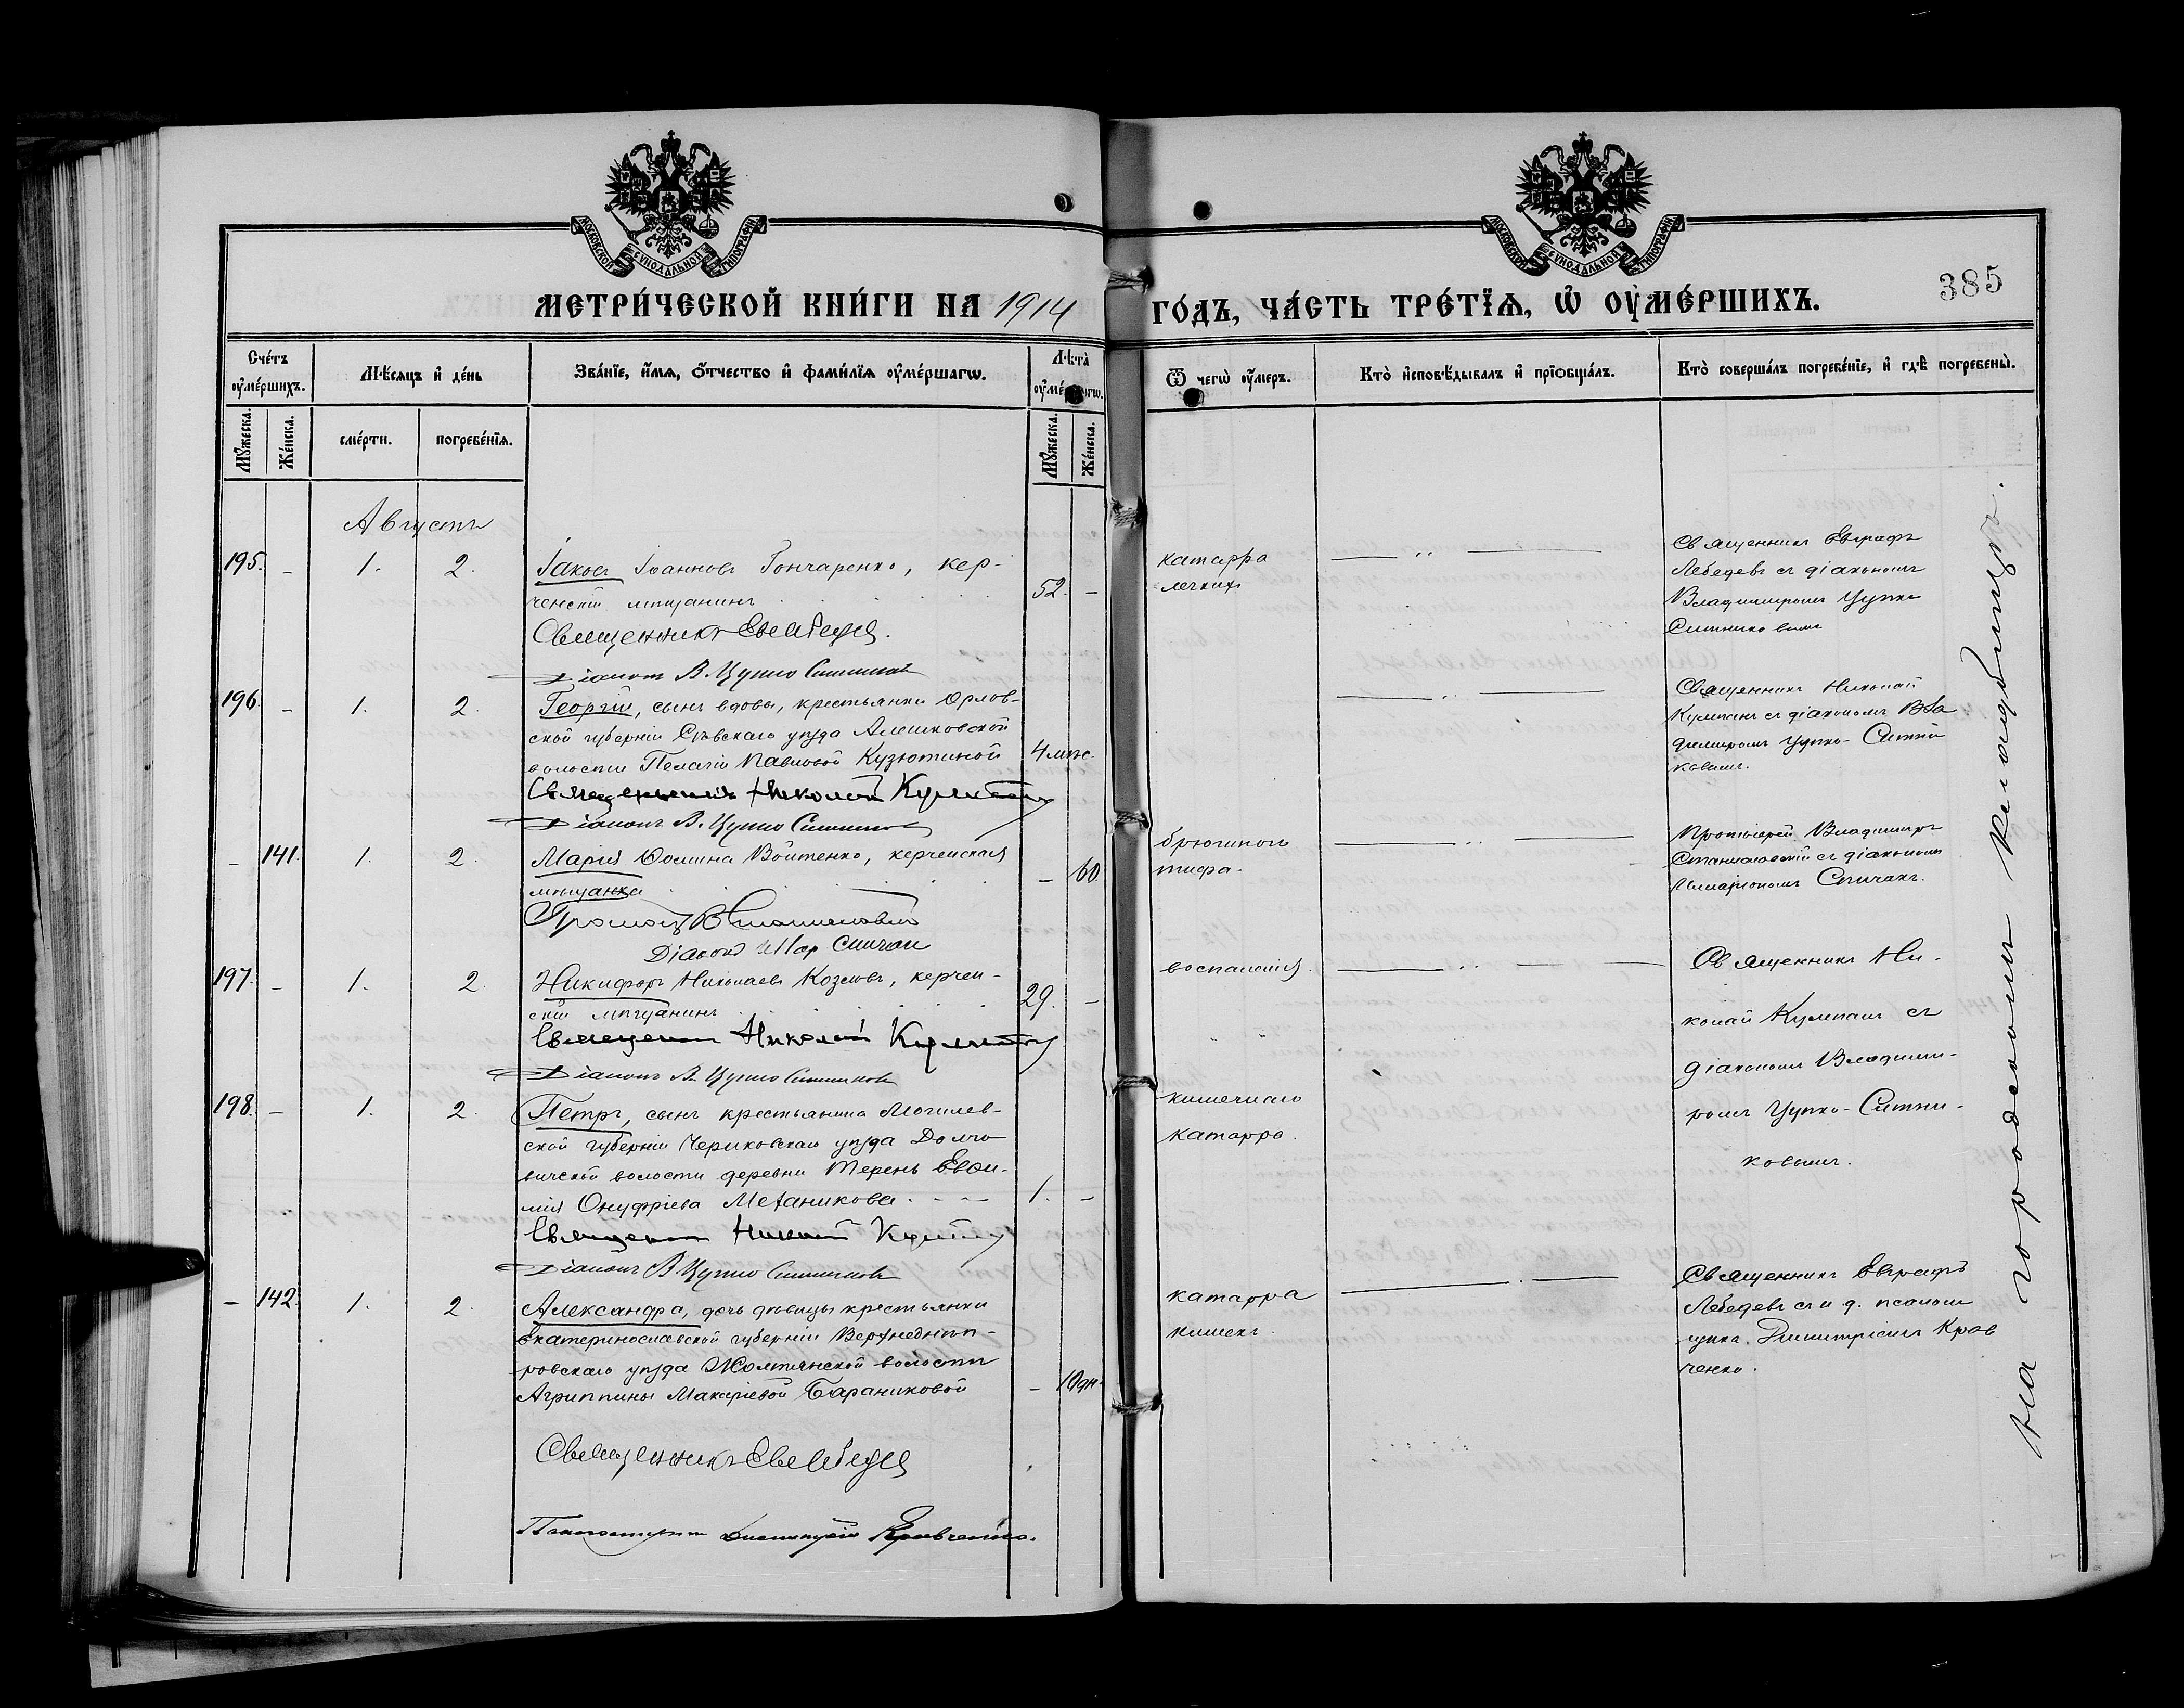 МОСКОВСКОЙ СѴНОДАЛЬНОЙ ТИПОГРАФІИ
МОСКОВСКОЙ СѴНОДАЛЬНОЙ ТИПОГРАФІИ
МЕТРИ́ЧЕСКОЙ КНИ́ГИ НА 1914
ГО́ДЪ, ЧА́СТЬ ТРЕ́ТЇѦ, Ѡ҆ ОУ҆МЕ́РШИХЪ.
385
Сче́тъ оу҆ме́ршихъ.
Мѣ́сяцъ и҆ де́нь
Зва́нїе, и҆́мѧ, ѻ҆́тчество и҆ фами́лїѧ оу҆ме́ршагѡ.
Лѣ́та̀ оу҆ме́ршагѡ.
Ѿ чегѡ̀ оу҆́меръ.
Кто̀ и҆сповѣ́дывалъ и҆ прїѻбща́лъ.
Кто̀ соверша́лъ погребе́нїе, и҆ гдѣ̀ погребены̀.
Мꙋ́жеска.
Же́нска.
сме́рти.
погребе́нїѧ.
Мꙋ́жеска.
Же́нска.
Августъ
195. - 1. 2. Іаковъ Іоанновъ Гончаренко, кер-
ченскій мѣщанинъ 52. -
Священникъ Ев Лебедев
Діаконъ В. Цупко Ситников
катарра
легкихъ
Священникъ Евграфъ
Лебедевъ съ діакономъ
Владимиромъ Цупко
Ситниковымъ
196. - 1. 2. Георгій, сынъ вдовы, крестьянки Орлов-
ской губерніи Сѣвскаго уѣзда Алешковской
волости Пелагіи Павловой Кузютиной 4 мѣс.
Священникъ Николай Кумпан
Діаконъ В. Цупко Ситников
Священникъ Николай
Кумпанъ съ діакономъ Вла
димиромъ Цупко-Ситни
ковымъ.
- 141. 1. 2. Марія Ѳомина Войтенко, керченская
мѣщанка - 60.
Протоіер В Станиславскій
Діаконъ Илар Спичак
брюшного
тифа.
Протоіерей Владимиръ
Станиславскій съ діакономъ
Иларіономъ Спичакъ.
197. - 1. 2. Никифоръ Николаевъ Козловъ, керчен-
скій мѣщанинъ 29. -
Священник Николай Кумпан
Діаконъ В. Цупко Ситников
воспаленія.
Священникъ Ни-
колай Кумпанъ съ
діакономъ Владими-
ромъ Цупко-Ситни-
ковымъ.
198. - 1. 2. Петръ, сынъ крестьянина Могилев-
ской губерніи Чериковскаго уѣзда Долго
вичской волости деревни Терень Евѳи-
мія Онуфріева Механикова. 1. -
Священник Николай Кумпан
Діаконъ В Цупко Ситников
кишечнаго
катарра.
- 142. 1. 2. Александра, дочь дѣвицы крестьянки
Екатеринославской губерніи Верхнеднѣп-
ровскаго уѣзда Жолтянской волости
Агриппины Макаріевой Бараниковой - 10 дн.
Священникъ Ев Лебедев
Псаломщикъ Димитрій Кравченко.
катарра
кишекъ.
Священникъ Евграфъ
Лебедевъ съ и д. псалом
щика Димитріемъ Крав
ченко.
На городскомъ кладбищѣ.